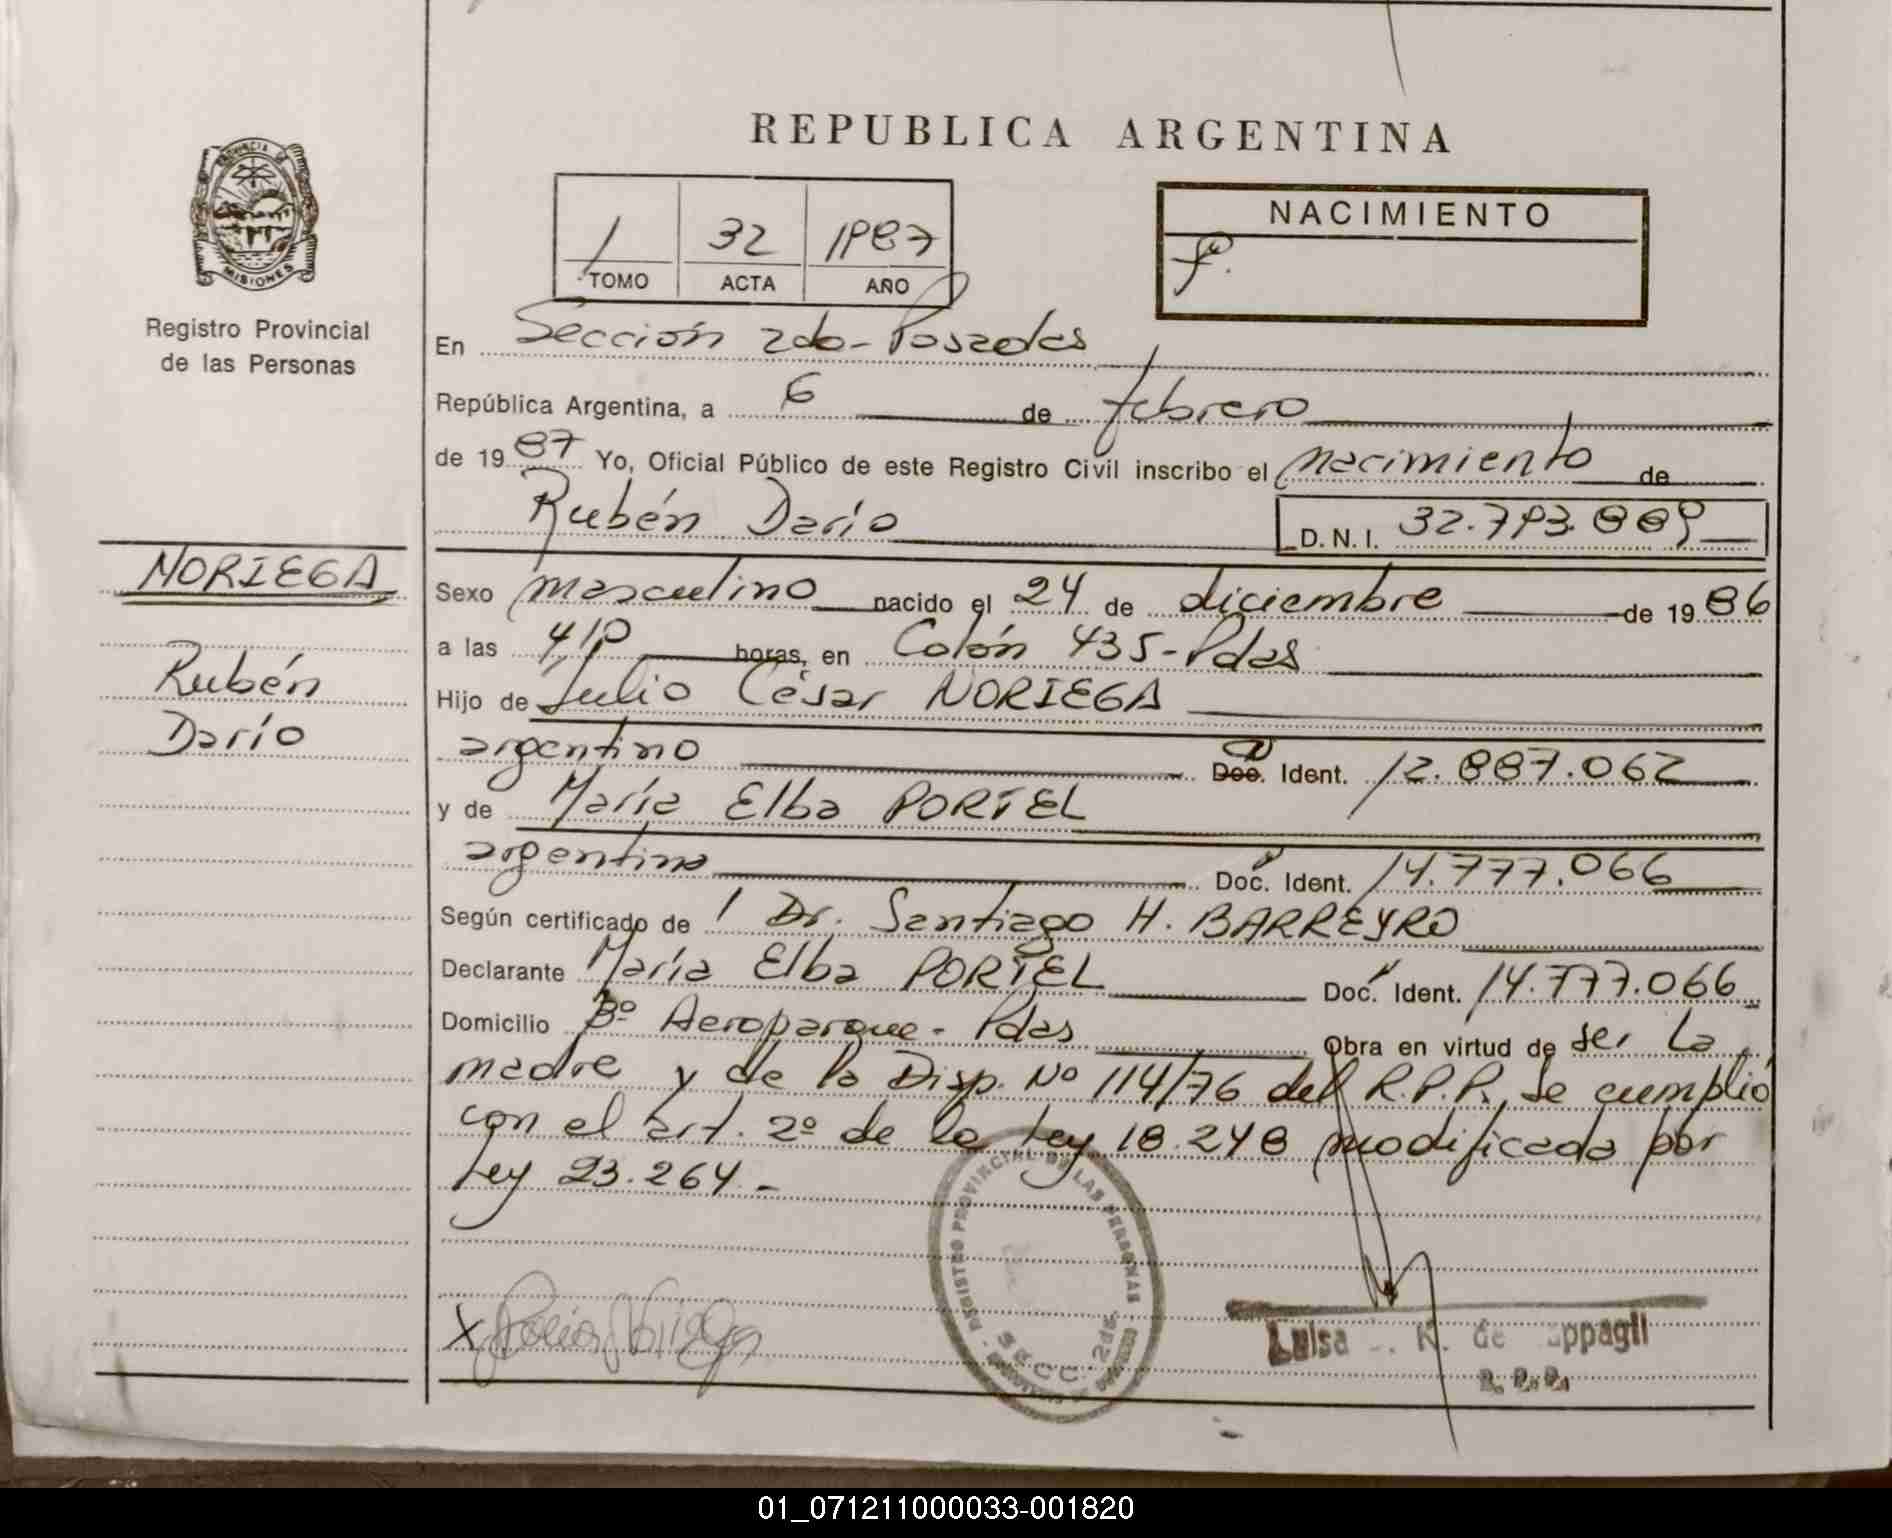 REPUBLICA ARGENTINA
PROVINCIA DE
MISIONES
Registro Provincial
de las Personas
1 32 1987
TOMO ACTA AÑO
NACIMIENTO
En Sección 2da - Posadas
República Argentina, a 6 de febrero
de 1987 Yo, Oficial Público de este Registro Civil inscribo el nacimiento de
Rubén Darío D.N.I. 32.793.889
NORIEGA
Rubén
Darío
Sexo masculino nacido el 24 de diciembre de 1986
a las 4,10 horas, en Colón 435-Pdas
Hijo de Julio César NORIEGA
argentino Doc. Ident. 12.887.062
y de María Elba PORTEL
argentina Doc. Ident. 14.777.066
Según certificado de Dr. Santiago H. BARREYRO
Declarante María Elba PORTEL Doc. Ident. 14.777.066
Domicilio Bº Aeroparque - Pdas Obra en virtud de ser la
madre y de la Disp. Nº 114/76 del R.P.P. Se cumplió
con el art. 2º de la Ley 18.248 modificada por
Ley 23.264.-
REGISTRO PROVINCIAL DE LAS PERSONAS
SECC. 2da.
X
Luisa K. de
R.P.P.
01_071211000033-001820